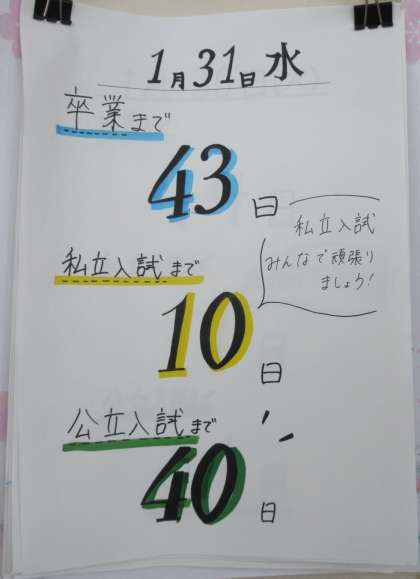 1月31日 水
卒業まで
43日
私立入試
みんなで頑張り
ましょう!
私立入試まで
10日
公立入試まで
40日